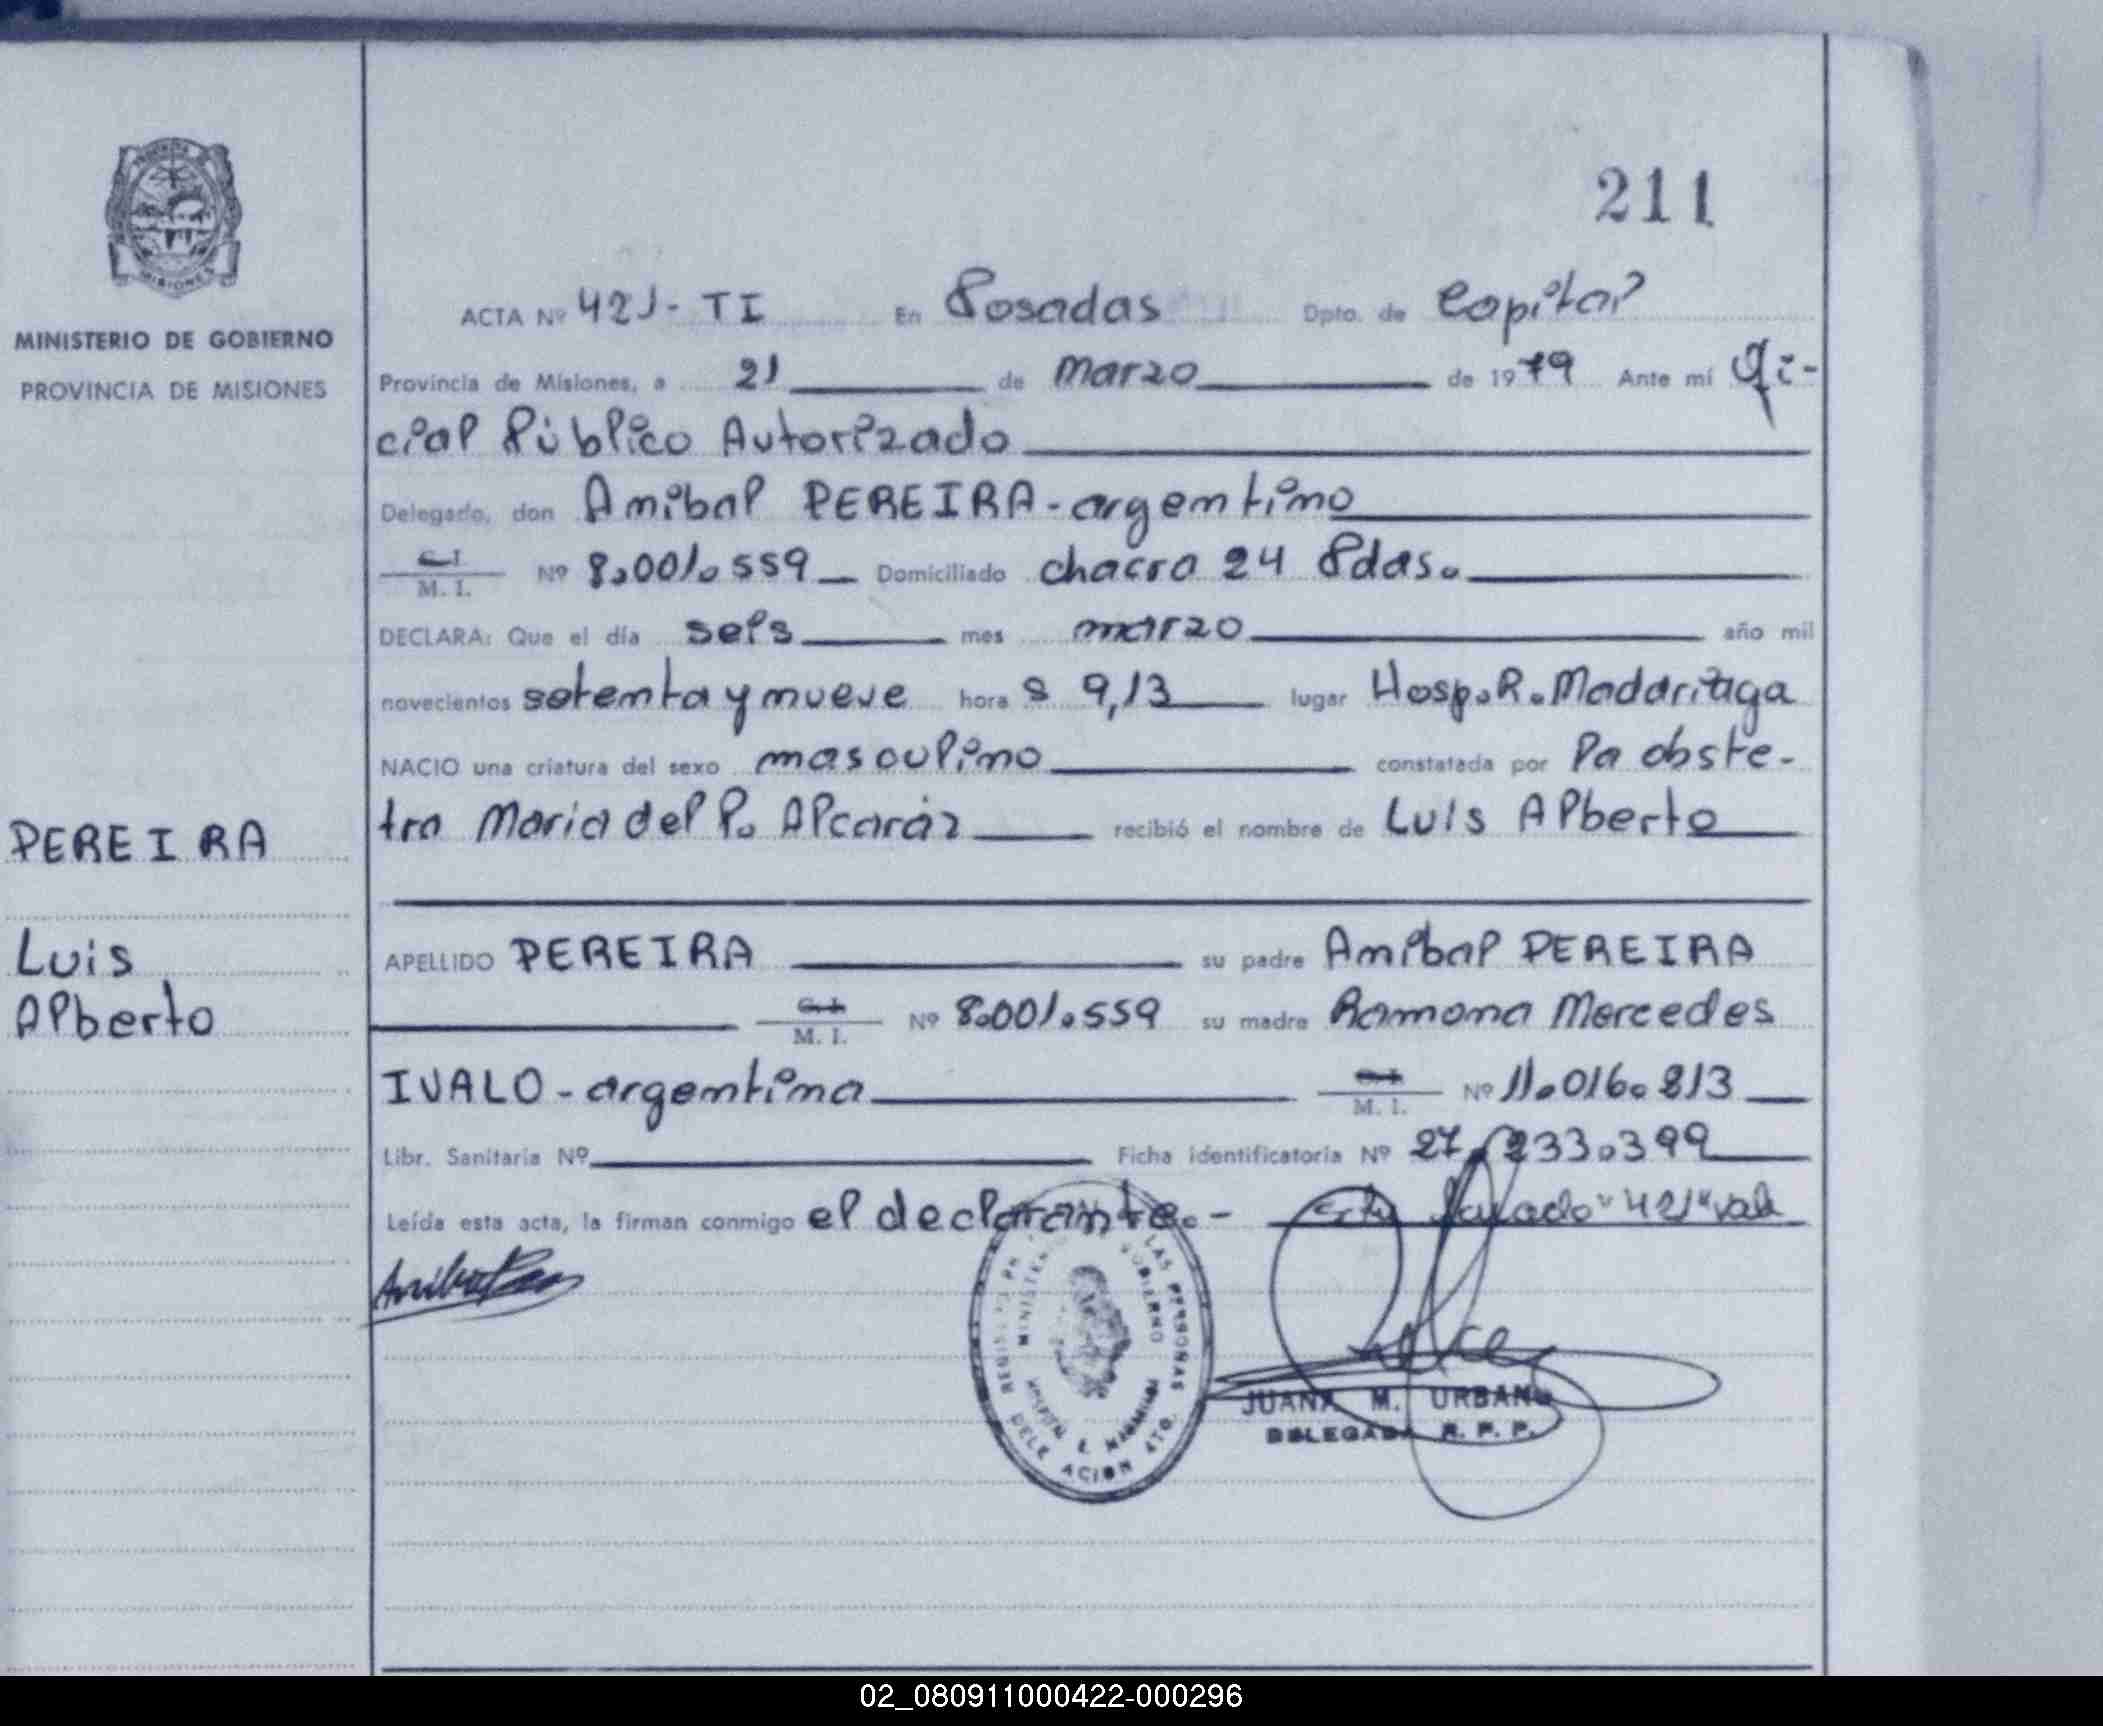 211
MINISTERIO DE GOBIERNO
PROVINCIA DE MISIONES
PEREIRA
Luis
Alberto
ACTA Nº 421 - TI En Posadas Dpto. de Capital
Provincia de Misiones, a 21 de marzo de 1979 Ante mí Ofi-
cial Público Autorizado
Delegado, don Anibal PEREIRA - argentino
C. I.
M. I. Nº 8.001.559 Domiciliado chacra 24 Pdas.
DECLARA: Que el día seis mes marzo año mil
novecientos setenta y nueve hora s 9,13 lugar Hosp. R. Madariaga
NACIO una criatura del sexo masculino constatada por la obste-
tra Maria del P. Alcaráz recibió el nombre de Luis Alberto
APELLIDO PEREIRA su padre Anibal PEREIRA
C. I.
M. I. Nº 8.001.559 su madre Ramona Mercedes
IVALO - argentina M. I. Nº 11.016.813
Libr. Sanitaria Nº Ficha identificatoria Nº 27.233.399
Leída esta acta, la firman conmigo el declarante.-
"421" vale
MINISTERIO GOBIERNO
LAS PERSONAS
JUANA M. URBANO
DELEGADA R. P. P.
02_080911000422-000296